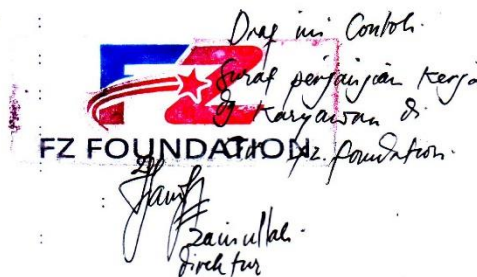 Draf ini Contoh.
Surat perjanjian Kerja
dg Karyawan di
FZ FOUNDATION
fz. foundation.
Zainullah.
direktur